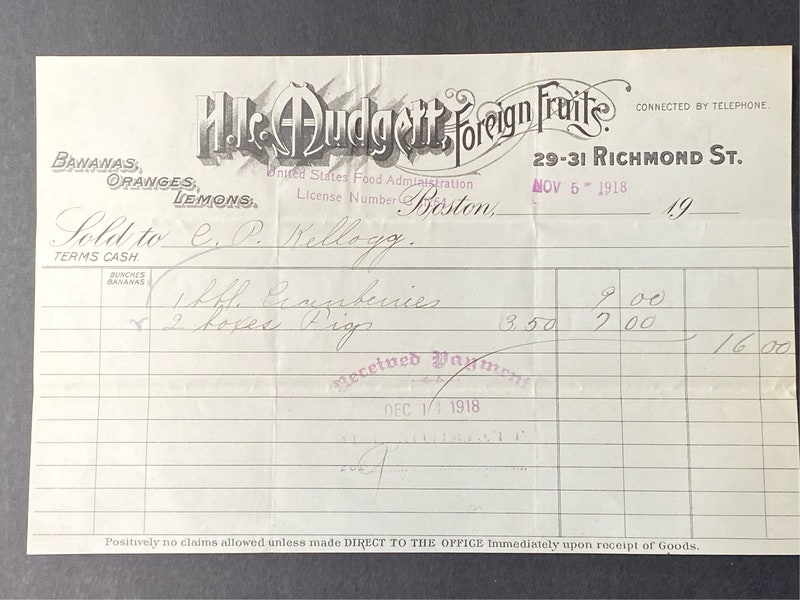 H.L. Mudgett, Foreign Fruits.
CONNECTED BY TELEPHONE.
BANANAS, ORANGES, LEMONS.
29-31 RICHMOND ST.
United States Food Administration
License Number G
NOV 5 - 1918
Boston, 19
Sold to C. P. Kellogg.
TERMS CASH.
BUNCHES BANANAS
1 bbl. Cranberries 9 00
2 boxes Figs 3.50 7 00
16 00
Received Payment
DEC 1 1918
Positively no claims allowed unless made DIRECT TO THE OFFICE Immediately upon receipt of Goods.